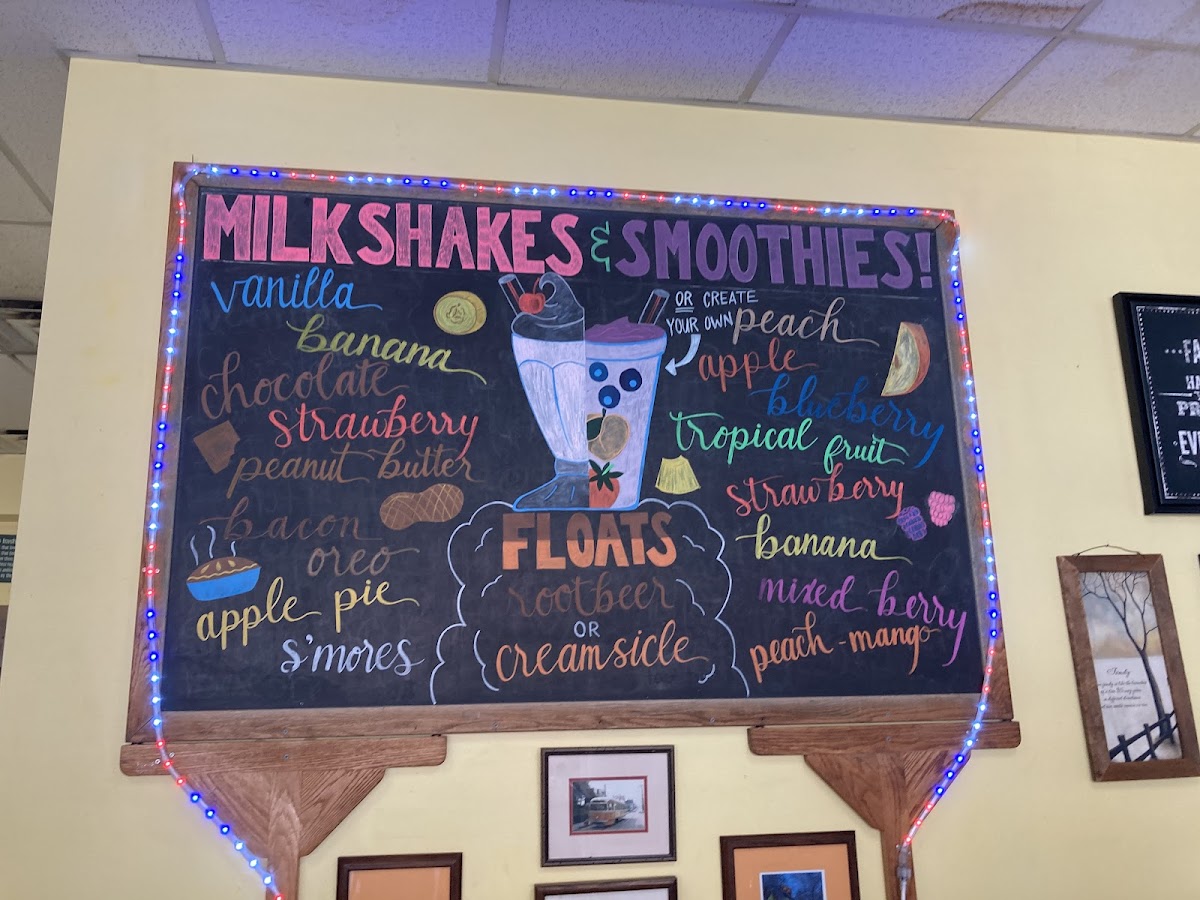 MILKSHAKES & SMOOTHIES!
vanilla
banana
chocolate
strawberry
peanut butter
bacon
oreo
apple pie
s'mores
OR CREATE
YOUR OWN
peach
apple
blueberry
tropical fruit
strawberry
banana
mixed berry
peach-mango
FLOATS
rootbeer
OR
creamsicle
Family